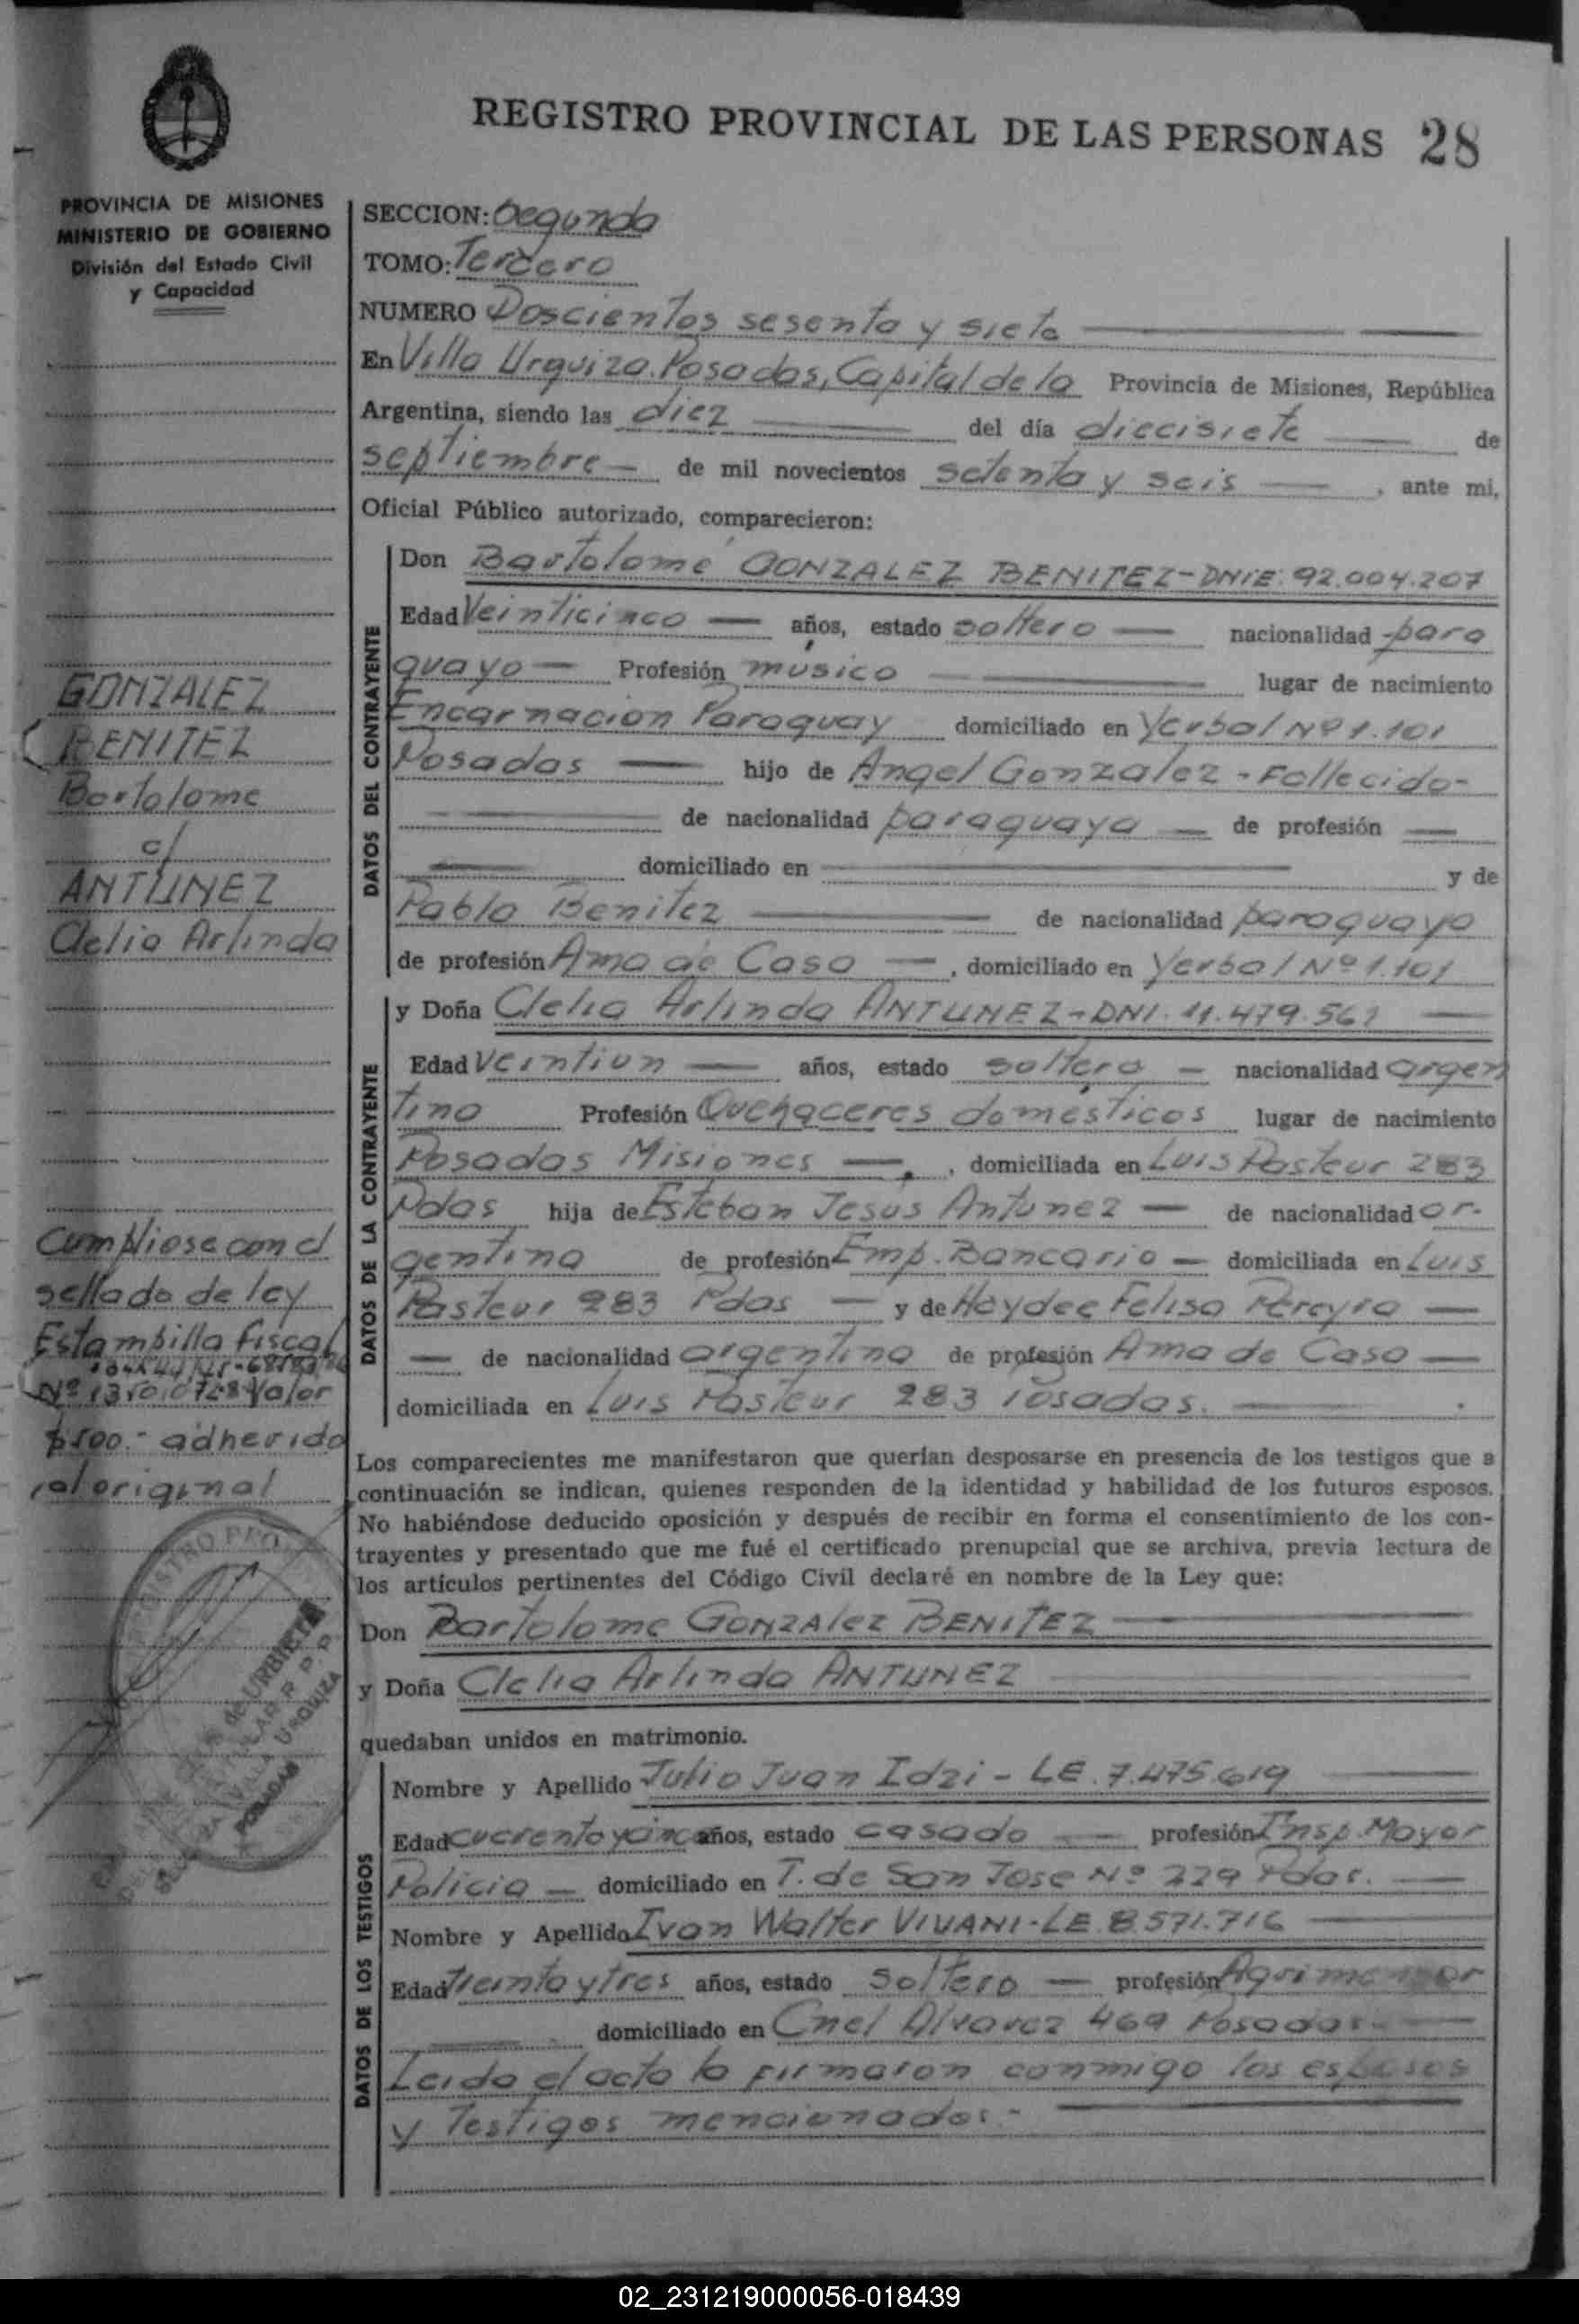 REGISTRO PROVINCIAL DE LAS PERSONAS 28
PROVINCIA DE MISIONES
MINISTERIO DE GOBIERNO
División del Estado Civil
y Capacidad
GONZALEZ
BENITEZ
Bartolome
c/
ANTUNEZ
Clelia Arlinda
Cumpliose con el
sellado de ley
Estampilla fiscal
Valor
$500.- adherido
al original
SECCION: Segunda
TOMO: Tercero
NUMERO Doscientos sesenta y siete
En Villa Urquiza. Posadas, Capital de la Provincia de Misiones, República
Argentina, siendo las diez del día diecisiete de
septiembre de mil novecientos setenta y seis , ante mi,
Oficial Público autorizado, comparecieron:
DATOS DEL CONTRAYENTE
Don Bartolomé GONZALEZ BENITEZ-DNIE: 92.004.207
Edad Veinticinco años, estado soltero nacionalidad para
guaya Profesión musico lugar de nacimiento
Encarnacion Paraguay domiciliado en Yerbal Nº 1.101
Posadas hijo de Angel Gonzalez - Fallecido-
de nacionalidad paraguaya de profesión
domiciliado en y de
Pabla Benitez de nacionalidad paraguaya
de profesión Ama de Casa , domiciliado en Yerbal Nº 1.101
DATOS DE LA CONTRAYENTE
y Doña Clelia Arlinda ANTUNEZ-DNI. 11.479.561
Edad Veintiun años, estado soltera nacionalidad argen
tina Profesión Quehaceres domésticos lugar de nacimiento
Posadas Misiones , domiciliada en Luis Pasteur 283
Pdas hija de Esteban Jesús Antunez de nacionalidad ar-
gentina de profesión Emp. Bancario domiciliada en Luis
Pasteur 283 Pdas y de Haydee Felisa Pereyra
de nacionalidad argentina de profesión Ama de Casa
domiciliada en Luis Pasteur 283 Posadas.
Los comparecientes me manifestaron que querían desposarse en presencia de los testigos que a
continuación se indican, quienes responden de la identidad y habilidad de los futuros esposos.
No habiéndose deducido oposición y después de recibir en forma el consentimiento de los con-
trayentes y presentado que me fué el certificado prenupcial que se archiva, previa lectura de
los artículos pertinentes del Código Civil declaré en nombre de la Ley que:
Don Bartolome GONZALEZ BENITEZ
y Doña Clelia Arlinda ANTUNEZ
quedaban unidos en matrimonio.
DATOS DE LOS TESTIGOS
Nombre y Apellido Julio Juan Idzi - LE. 7.475.619
Edad cuarenta y cinco años, estado casado profesión Insp. Mayor
Policia domiciliado en T. de San Jose Nº 229 Pdas.
Nombre y Apellido Ivan Walter VIVANI-LE 8.571.716
Edad treinta y tres años, estado soltero profesión Agrimensor
domiciliado en Cnel Alvarez 469 Posadas.
Leido el acta la firmaron conmigo los esposos
y Testigos mencionados.-
02_231219000056-018439